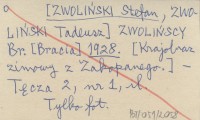 [ZWOLIŃSKI Stefan, ZWO-
LIŃSKI Tadeusz] ZWOLIŃSCY
Br. [Bracia] 1928. [Krajobraz
zimowy z Zakopanego.] –
Tęcza 2, nr 1, il.
Tylko fot.